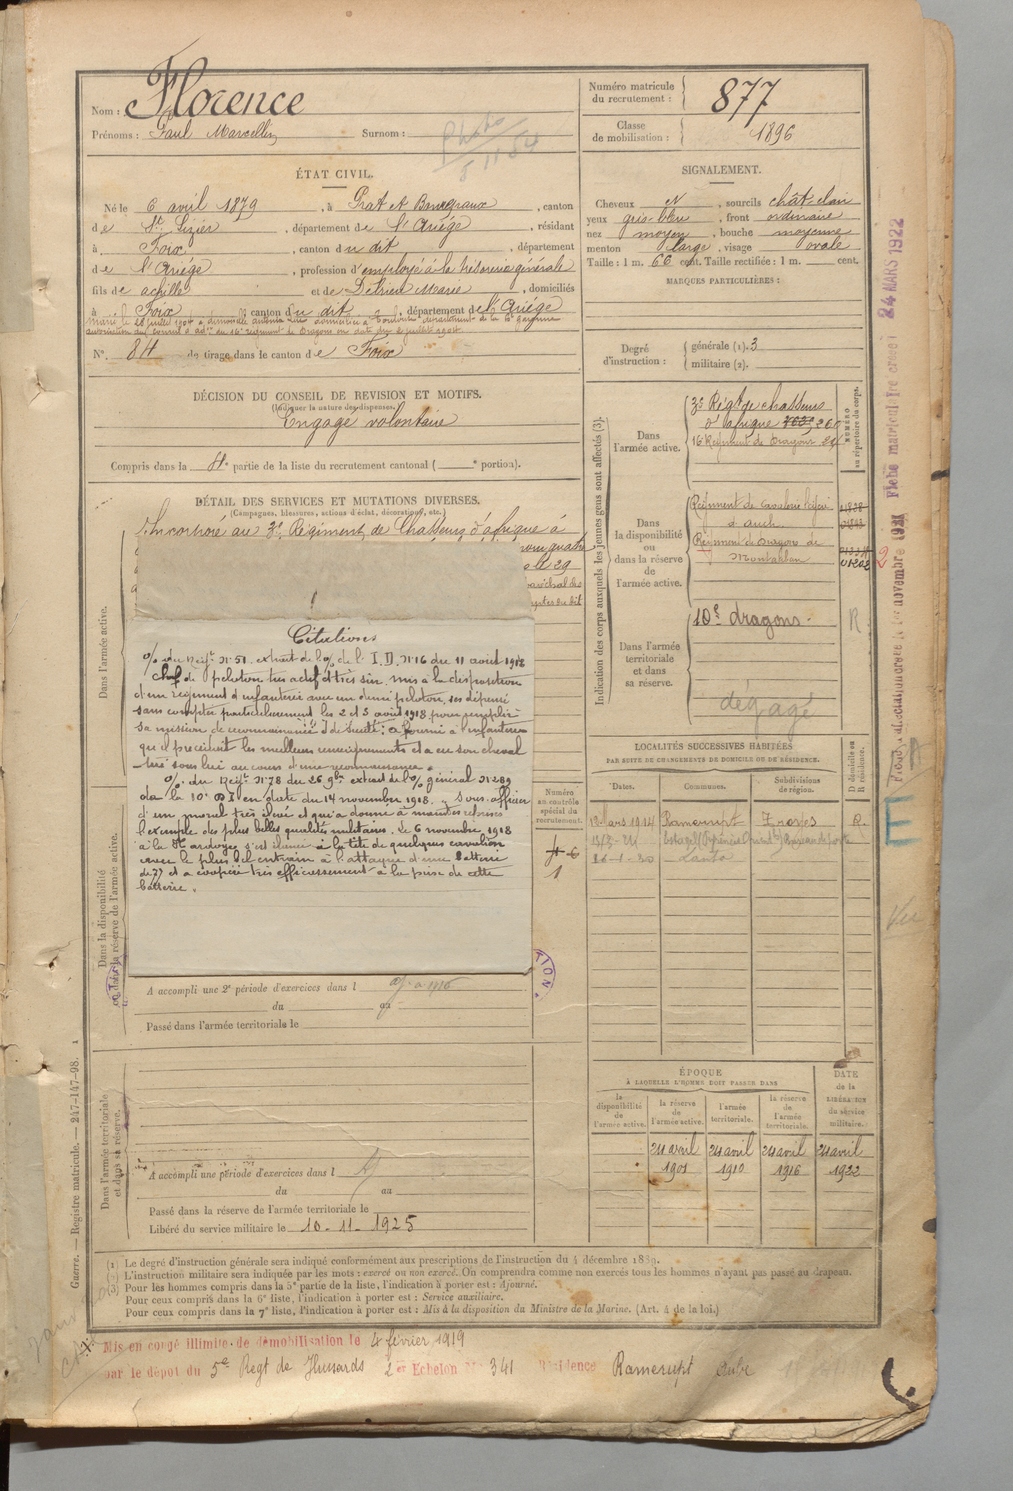 Nom : Florence
Prénoms : Paul Marcellin Surnom :
Numéro matricule du recrutement : 877
Classe de mobilisation : 1896
Photo 8 11 54
ÉTAT CIVIL.
Né le 6 avril 1879, à Prat et Bonrepaux, canton
de St. Lizier, département de l'Ariége, résidant
à Foix, canton du dit, département
de l'Ariége, profession d'employé à la trésorerie générale
fils de achille et de Detrieu Marie, domiciliés
à Foix, canton du dit, département de l'Ariége
autorisation du Conseil d'adon du 16e régiment de Dragons en date du 2 juillet 1904
N°. 84 de tirage dans le canton de Foix
DÉCISION DU CONSEIL DE REVISION ET MOTIFS.
(Indiquer la nature des dispenses.)
Engagé volontaire
Compris dans la 4e partie de la liste du recrutement cantonal ( e portion).
SIGNALEMENT.
Cheveux et, sourcils chât clair
yeux gris-bleu, front ordinaire
nez moyen, bouche moyenne
menton large, visage ovale
Taille : 1 m. 66 cent. Taille rectifiée : 1 m. cent.
MARQUES PARTICULIÈRES :
Degré d'instruction : générale (1). 3
militaire (2).
DÉTAIL DES SERVICES ET MUTATIONS DIVERSES.
(Campagnes, blessures, actions d'éclat, décorations, etc.)
Incorporé au 3e Régiment de Chasseurs d'afrique à
pour quatre
le 29
Citations
O/ du Régt N° 51 extrait de l'O/ de l'I.D. N° 16 du 11 août 1918
Chef de peloton très actif et très sûr, mis à la disposition
d'un régiment d'infanterie avec un demi peloton, s'est dépensé
sans compter particulièrement les 2 et 3 août 1918 pour remplir
sa mission de reconnaissance et de sûreté ; a fourni à l'infanterie
qu'il précédait les meilleurs renseignements et a eu son cheval
tué sous lui au cours d'une reconnaissance.
O/ du Régt N° 78 du 26 9bre extrait de l'O/ général N° 289
de la 10e D I en date du 14 novembre 1918. Sous-officier
d'un moral très élevé et qui a donné à maintes reprises
l'exemple des plus belles qualités militaires. Le 6 novembre 1918
à la Hardoye s'est élancé à la tête de quelques cavaliers
avec le plus bel entrain à l'attaque d'une batterie
de 77 et a coopéré très efficacement à la prise de cette
batterie.
Dans l'armée active.
Dans la disponibilité ou dans la réserve de l'armée active.
Dans l'armée territoriale et dans sa réserve.
Numéro au contrôle spécial du recrutement.
1
A accompli une 2e période d'exercices dans l
du au
Passé dans l'armée territoriale le
A accompli une période d'exercices dans l
du au
Passé dans la réserve de l'armée territoriale le
Libéré du service militaire le 10-11-1925
Indication des corps auxquels les jeunes gens sont affectés (3).
NUMÉRO au répertoire du corps.
Dans l'armée active.
3e Régt de chasseurs d'afrique
16 Régiment de Dragons
Dans la disponibilité ou dans la réserve de l'armée active.
Régiment de Cavalerie légère
à auch
Régiment de Dragons de
Montauban
Dans l'armée territoriale et dans sa réserve.
10e dragons. R
dégagé
LOCALITÉS SUCCESSIVES HABITÉES
PAR SUITE DE CHANGEMENTS DE DOMICILE OU DE RÉSIDENCE.
Dates. Communes. Subdivisions de région. D domicile ou R résidence.
Mars 1914 Ramerupt Troyes R.
ÉPOQUE
À LAQUELLE L'HOMME DOIT PASSER DANS
la disponibilité de l'armée active. la réserve de l'armée active. l'armée territoriale. la réserve de l'armée territoriale. DATE de la LIBÉRATION du service militaire.
24 avril 1901 24 avril 1910 24 avril 1916 24 avril 1922
24 MARS 1922
Vu
Guerre. — Registre matricule. — 247-147-98.
(1) Le degré d'instruction générale sera indiqué conformément aux prescriptions de l'instruction du 4 décembre 1889.
(2) L'instruction militaire sera indiquée par les mots : exercé ou non exercé. On comprendra comme non exercés tous les hommes n'ayant pas passé au drapeau.
(3) Pour les hommes compris dans la 5e partie de la liste, l'indication à porter est : Ajourné.
Pour ceux compris dans la 6e liste, l'indication à porter est : Service auxiliaire.
Pour ceux compris dans la 7e liste, l'indication à porter est : Mis à la disposition du Ministre de la Marine. (Art. 4 de la loi.)
Mis en congé illimité de démobilisation le 4 février 1919
par le dépôt du 5e Regt de Hussards 2er Echelon N° 341 Résidence Ramerupt Aube